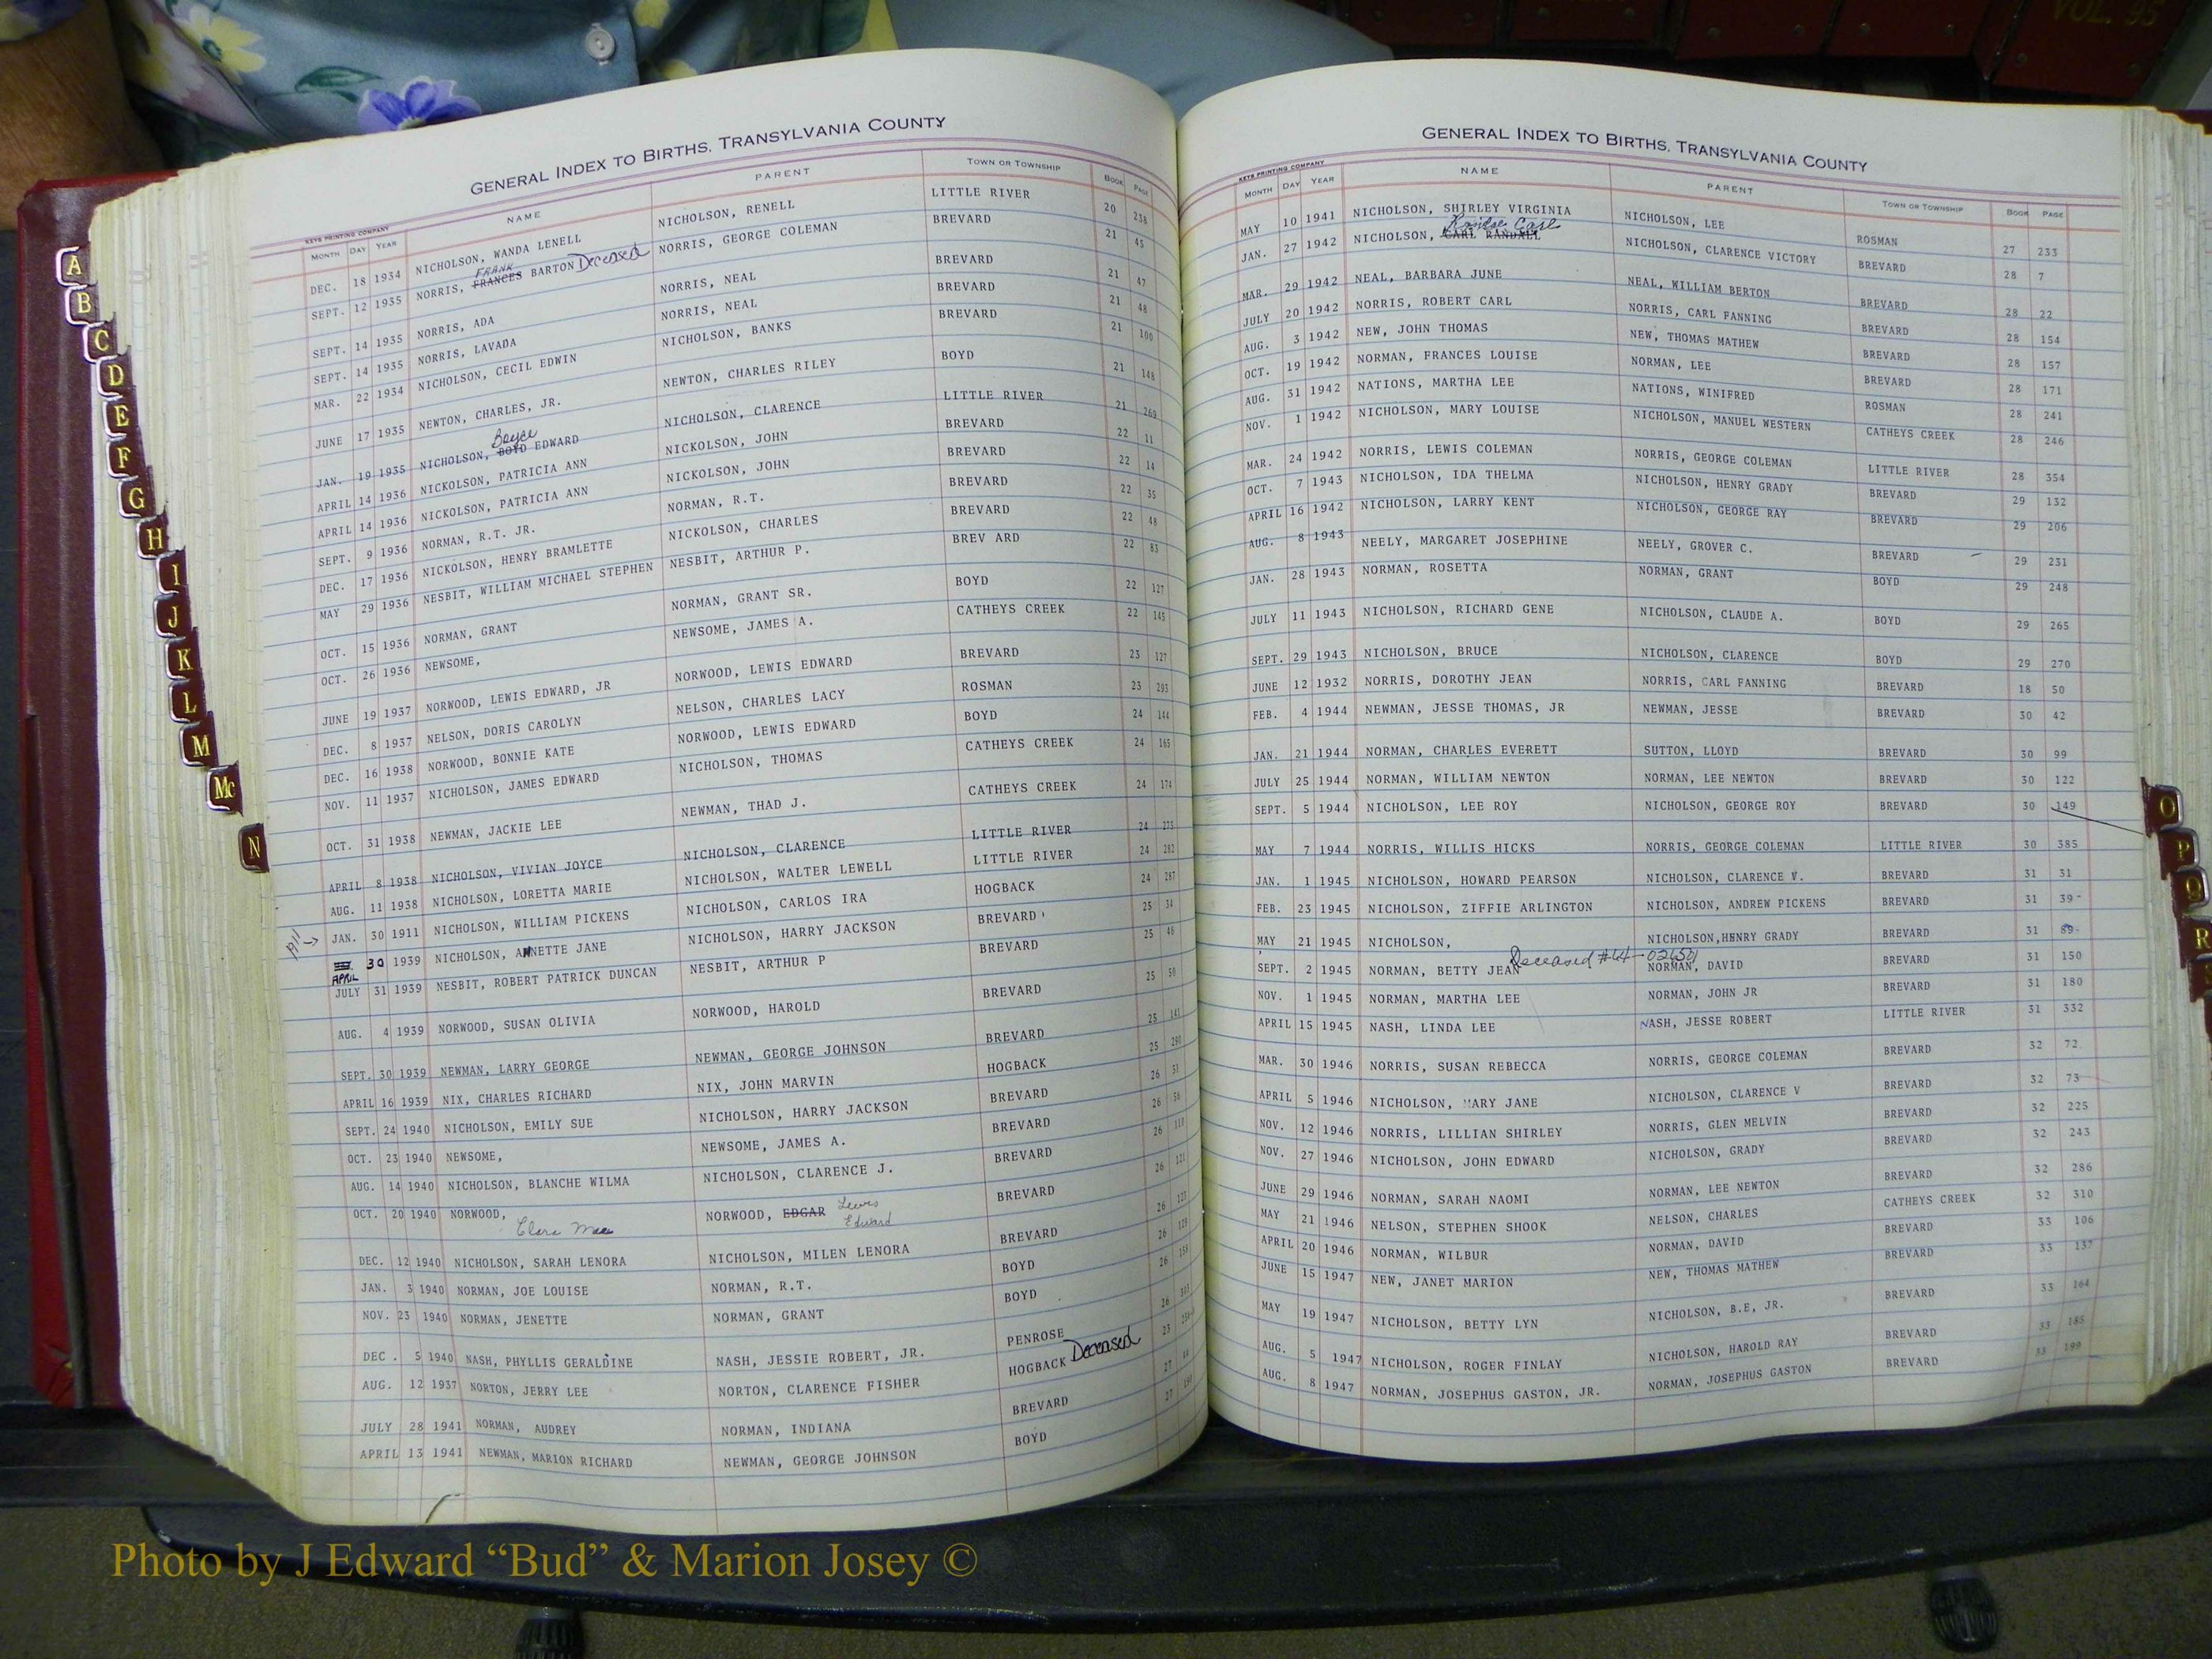 VOL. 95
GENERAL INDEX TO BIRTHS, TRANSYLVANIA COUNTY
KEYS PRINTING COMPANY
MONTH DAY YEAR NAME PARENT TOWN OR TOWNSHIP BOOK PAGE
DEC. 18 1934 NICHOLSON, WANDA LENELL NICHOLSON, RENELL LITTLE RIVER 20 238
SEPT. 12 1935 NORRIS, FRANCES FRANK BARTON Deceased NORRIS, GEORGE COLEMAN BREVARD 21 45
SEPT. 14 1935 NORRIS, ADA NORRIS, NEAL BREVARD 21 47
SEPT. 14 1935 NORRIS, LAVADA NORRIS, NEAL BREVARD 21 48
MAR. 22 1934 NICHOLSON, CECIL EDWIN NICHOLSON, BANKS BREVARD 21 100
JUNE 17 1935 NEWTON, CHARLES, JR. NEWTON, CHARLES RILEY BOYD 21 148
JAN. 19 1935 NICHOLSON, BOYD Boyce EDWARD NICHOLSON, CLARENCE LITTLE RIVER 21 269
APRIL 14 1936 NICKOLSON, PATRICIA ANN NICKOLSON, JOHN BREVARD 22 11
APRIL 14 1936 NICKOLSON, PATRICIA ANN NICKOLSON, JOHN BREVARD 22 14
SEPT. 9 1936 NORMAN, R.T. JR. NORMAN, R.T. BREVARD 22 35
DEC. 17 1936 NICKOLSON, HENRY BRAMLETTE NICKOLSON, CHARLES BREVARD 22 48
MAY 29 1936 NESBIT, WILLIAM MICHAEL STEPHEN NESBIT, ARTHUR P. BREV ARD 22 83
OCT. 15 1936 NORMAN, GRANT NORMAN, GRANT SR. BOYD 22 127
OCT. 26 1936 NEWSOME, NEWSOME, JAMES A. CATHEYS CREEK 22 145
JUNE 19 1937 NORWOOD, LEWIS EDWARD, JR NORWOOD, LEWIS EDWARD BREVARD 23 127
DEC. 8 1937 NELSON, DORIS CAROLYN NELSON, CHARLES LACY ROSMAN 23 293
DEC. 16 1938 NORWOOD, BONNIE KATE NORWOOD, LEWIS EDWARD BOYD 24 144
NOV. 11 1937 NICHOLSON, JAMES EDWARD NICHOLSON, THOMAS CATHEYS CREEK 24 165
OCT. 31 1938 NEWMAN, JACKIE LEE NEWMAN, THAD J. CATHEYS CREEK 24 174
APRIL 8 1938 NICHOLSON, VIVIAN JOYCE NICHOLSON, CLARENCE LITTLE RIVER 24
AUG. 11 1938 NICHOLSON, LORETTA MARIE NICHOLSON, WALTER LEWELL LITTLE RIVER 24 282
1911 → JAN. 30 1911 NICHOLSON, WILLIAM PICKENS NICHOLSON, CARLOS IRA HOGBACK 24 287
APRIL 30 1939 NICHOLSON, ANNETTE JANE NICHOLSON, HARRY JACKSON BREVARD 25 34
JULY 31 1939 NESBIT, ROBERT PATRICK DUNCAN NESBIT, ARTHUR P BREVARD 25 46
AUG. 4 1939 NORWOOD, SUSAN OLIVIA NORWOOD, HAROLD BREVARD 25 50
SEPT. 30 1939 NEWMAN, LARRY GEORGE NEWMAN, GEORGE JOHNSON BREVARD 25 141
APRIL 16 1939 NIX, CHARLES RICHARD NIX, JOHN MARVIN HOGBACK 25 280
SEPT. 24 1940 NICHOLSON, EMILY SUE NICHOLSON, HARRY JACKSON BREVARD 26 51
OCT. 23 1940 NEWSOME, NEWSOME, JAMES A. BREVARD 26
AUG. 14 1940 NICHOLSON, BLANCHE WILMA NICHOLSON, CLARENCE J. BREVARD 26 110
OCT. 20 1940 NORWOOD, Clara Mae NORWOOD, EDGAR Lewis Edward BREVARD 26 121
DEC. 12 1940 NICHOLSON, SARAH LENORA NICHOLSON, MILEN LENORA BREVARD 26 127
JAN. 3 1940 NORMAN, JOE LOUISE NORMAN, R.T. BOYD 26 128
NOV. 23 1940 NORMAN, JENETTE NORMAN, GRANT BOYD 26 158
DEC. 5 1940 NASH, PHYLLIS GERALDINE NASH, JESSIE ROBERT, JR. PENROSE 26
AUG. 12 1937 NORTON, JERRY LEE NORTON, CLARENCE FISHER HOGBACK Deceased 23
JULY 28 1941 NORMAN, AUDREY NORMAN, INDIANA BREVARD 27
APRIL 13 1941 NEWMAN, MARION RICHARD NEWMAN, GEORGE JOHNSON BOYD 27
GENERAL INDEX TO BIRTHS, TRANSYLVANIA COUNTY
KEYS PRINTING COMPANY
MONTH DAY YEAR NAME PARENT TOWN OR TOWNSHIP BOOK PAGE
MAY 10 1941 NICHOLSON, SHIRLEY VIRGINIA NICHOLSON, LEE ROSMAN 27 233
JAN. 27 1942 NICHOLSON, CARL RANDALL Randall Carl NICHOLSON, CLARENCE VICTORY BREVARD 28 7
MAR. 29 1942 NEAL, BARBARA JUNE NEAL, WILLIAM BERTON BREVARD 28 22
JULY 20 1942 NORRIS, ROBERT CARL NORRIS, CARL FANNING BREVARD 28 154
AUG. 3 1942 NEW, JOHN THOMAS NEW, THOMAS MATHEW BREVARD 28 157
OCT. 19 1942 NORMAN, FRANCES LOUISE NORMAN, LEE BREVARD 28 171
AUG. 31 1942 NATIONS, MARTHA LEE NATIONS, WINIFRED ROSMAN 28 241
NOV. 1 1942 NICHOLSON, MARY LOUISE NICHOLSON, MANUEL WESTERN CATHEYS CREEK 28 246
MAR. 24 1942 NORRIS, LEWIS COLEMAN NORRIS, GEORGE COLEMAN LITTLE RIVER 28 354
OCT. 7 1943 NICHOLSON, IDA THELMA NICHOLSON, HENRY GRADY BREVARD 29 132
APRIL 16 1942 NICHOLSON, LARRY KENT NICHOLSON, GEORGE RAY BREVARD 29 206
AUG. 8 1943 NEELY, MARGARET JOSEPHINE NEELY, GROVER C. BREVARD 29 231
JAN. 28 1943 NORMAN, ROSETTA NORMAN, GRANT BOYD 29 248
JULY 11 1943 NICHOLSON, RICHARD GENE NICHOLSON, CLAUDE A. BOYD 29 265
SEPT. 29 1943 NICHOLSON, BRUCE NICHOLSON, CLARENCE BOYD 29 270
JUNE 12 1932 NORRIS, DOROTHY JEAN NORRIS, CARL FANNING BREVARD 18 50
FEB. 4 1944 NEWMAN, JESSE THOMAS, JR NEWMAN, JESSE BREVARD 30 42
JAN. 21 1944 NORMAN, CHARLES EVERETT SUTTON, LLOYD BREVARD 30 99
JULY 25 1944 NORMAN, WILLIAM NEWTON NORMAN, LEE NEWTON BREVARD 30 122
SEPT. 5 1944 NICHOLSON, LEE ROY NICHOLSON, GEORGE ROY BREVARD 30 149
MAY 7 1944 NORRIS, WILLIS HICKS NORRIS, GEORGE COLEMAN LITTLE RIVER 30 385
JAN. 1 1945 NICHOLSON, HOWARD PEARSON NICHOLSON, CLARENCE V. BREVARD 31 31
FEB. 23 1945 NICHOLSON, ZIFFIE ARLINGTON NICHOLSON, ANDREW PICKENS BREVARD 31 39
MAY 21 1945 NICHOLSON, NICHOLSON, HENRY GRADY BREVARD 31 89
Deceased #64-026501
SEPT. 2 1945 NORMAN, BETTY JEAN NORMAN, DAVID BREVARD 31 150
NOV. 1 1945 NORMAN, MARTHA LEE NORMAN, JOHN JR BREVARD 31 180
APRIL 15 1945 NASH, LINDA LEE NASH, JESSE ROBERT LITTLE RIVER 31 332
MAR. 30 1946 NORRIS, SUSAN REBECCA NORRIS, GEORGE COLEMAN BREVARD 32 72
APRIL 5 1946 NICHOLSON, MARY JANE NICHOLSON, CLARENCE V BREVARD 32 73
NOV. 12 1946 NORRIS, LILLIAN SHIRLEY NORRIS, GLEN MELVIN BREVARD 32 225
NOV. 27 1946 NICHOLSON, JOHN EDWARD NICHOLSON, GRADY BREVARD 32 243
JUNE 29 1946 NORMAN, SARAH NAOMI NORMAN, LEE NEWTON BREVARD 32 286
MAY 21 1946 NELSON, STEPHEN SHOOK NELSON, CHARLES CATHEYS CREEK 32 310
APRIL 20 1946 NORMAN, WILBUR NORMAN, DAVID BREVARD 33 106
JUNE 15 1947 NEW, JANET MARION NEW, THOMAS MATHEW BREVARD 33 137
MAY 19 1947 NICHOLSON, BETTY LYN NICHOLSON, B.E, JR. BREVARD 33 164
AUG. 5 1947 NICHOLSON, ROGER FINLAY NICHOLSON, HAROLD RAY BREVARD 33 185
AUG. 8 1947 NORMAN, JOSEPHUS GASTON, JR. NORMAN, JOSEPHUS GASTON BREVARD 33 199
A
B
C
D
E
F
G
H
I
J
K
L
M
Mc
N
O
P
Q
R
Photo by J Edward “Bud” & Marion Josey ©